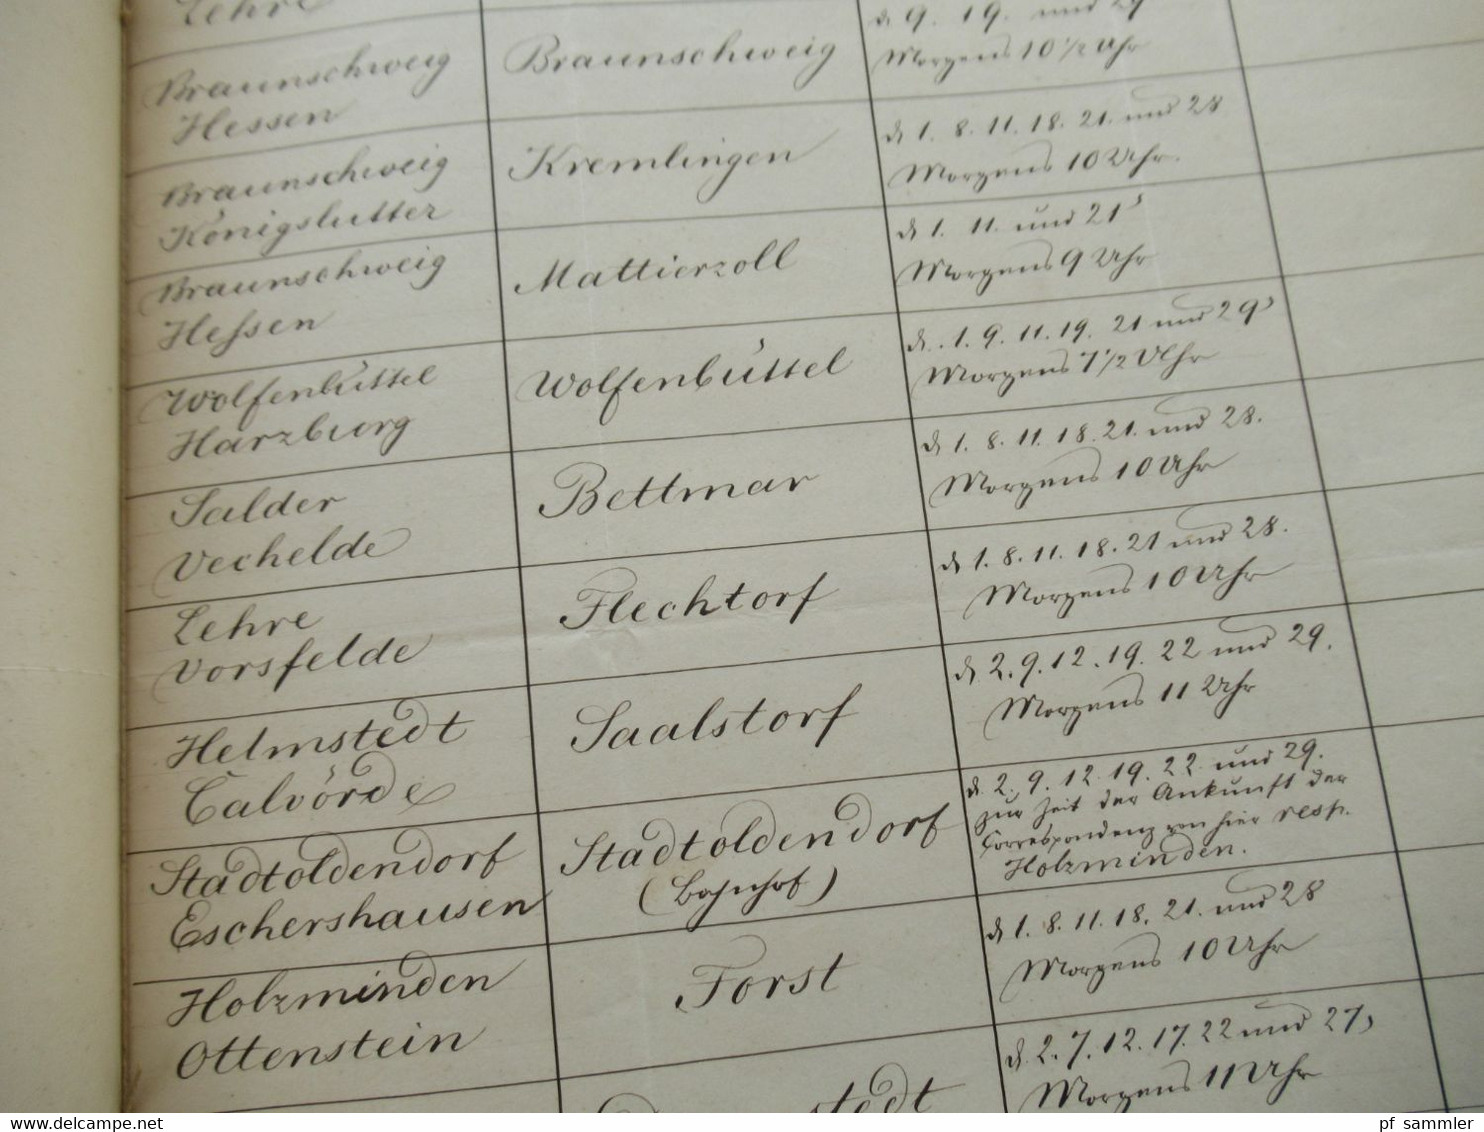 Lehre
d. 9. 19. und 29
Morgens 10 1/2 Uhr
Braunschweig
Hessen
Braunschweig
d. 1. 8. 11. 18. 21. und 28
Morgens 10 Uhr.
Braunschweig
Königslutter
Kremlingen
d. 1. 11. und 21
Morgens 9 Uhr
Braunschweig
Hessen
Mattierzoll
d. 1. 9. 11. 19. 21 und 29
Morgens 7 1/2 Uhr
Wolfenbüttel
Harzburg
Wolfenbüttel
d. 1. 8. 11. 18. 21. und 28.
Morgens 10 Uhr
Salder
Vechelde
Bettmar
d. 1. 8. 11. 18. 21 und 28.
Morgens 10 Uhr
Lehre
Vorsfelde
Flechtorf
d. 2. 9. 12. 19. 22 und 29.
Morgens 11 Uhr
Helmstedt
Calvörde
Saalstorf
d. 2. 9. 12. 19. 22. und 29.
zur Zeit der Ankunft der
Correspondenz von hier resp.
Holzminden.
Stadtoldendorf
Eschershausen
Stadtoldendorf
(Bahnhof)
d. 1. 8. 11. 18. 21. und 28
Morgens 10 Uhr
Holzminden
Ottenstein
Forst
d. 2. 7. 12. 17. 22 und 27,
Morgens 11 Uhr
www.delcampe.net
pf_sammler